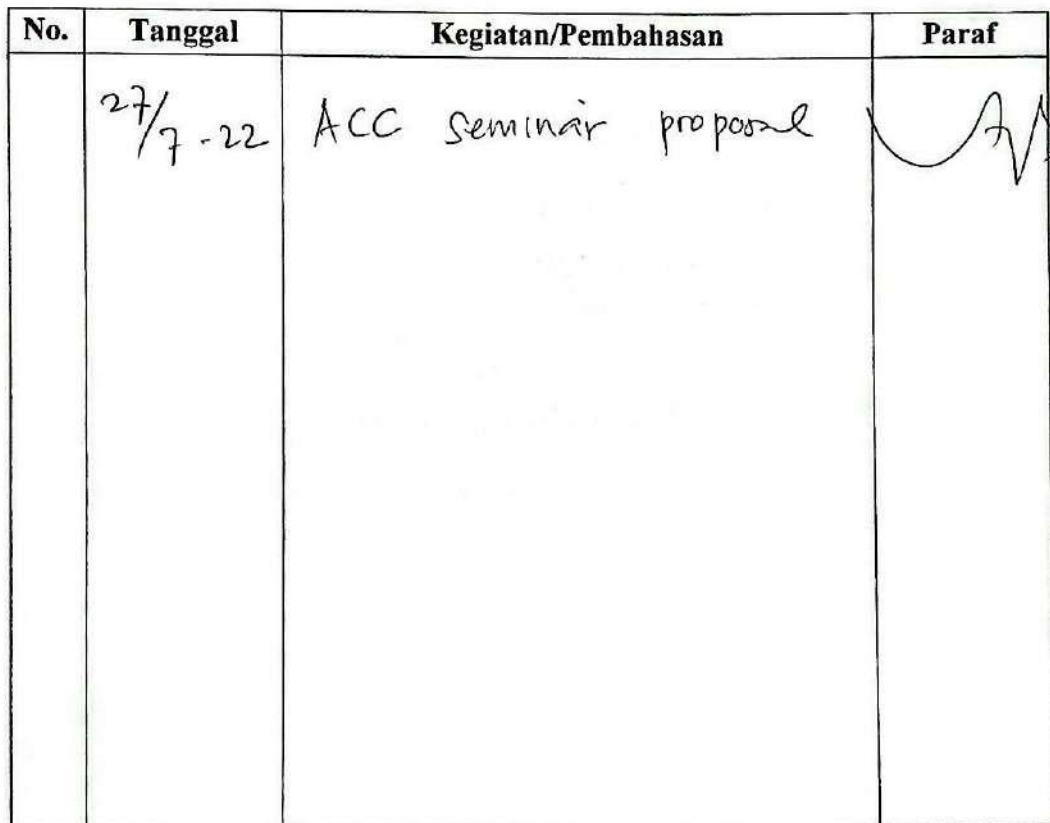 No. Tanggal Kegiatan/Pembahasan Paraf
27/7-22 ACC seminar proposal